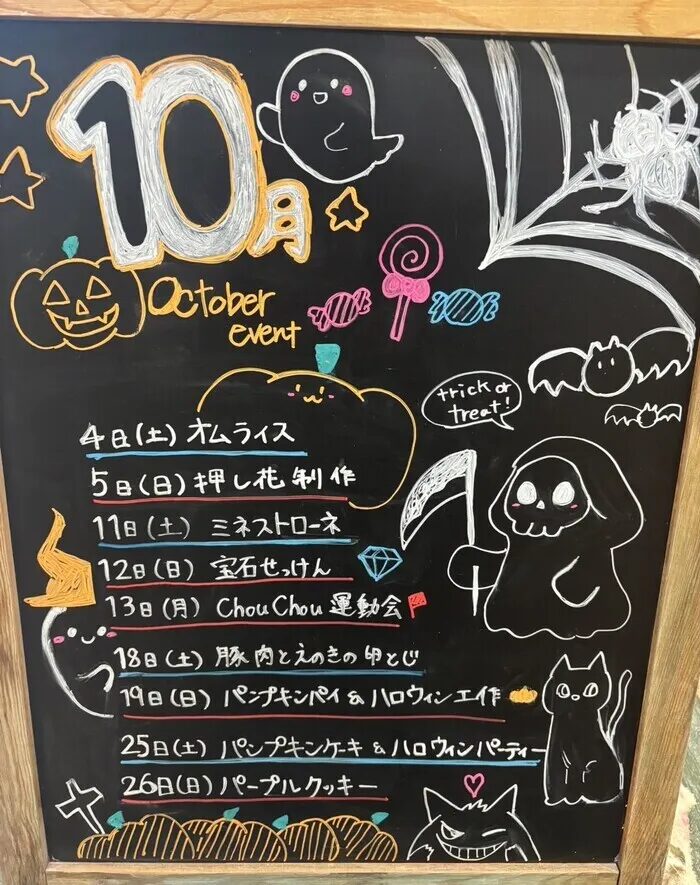 10月
October
event
trick or
treat!
4日(土) オムライス
5日(日) 押し花制作
11日(土) ミネストローネ
12日(日) 宝石せっけん
13日(月) ChouChou運動会
18日(土) 豚肉とえのきの卵とじ
19日(日) パンプキンパイ&ハロウィン工作
25日(土) パンプキンケーキ&ハロウィンパーティー
26日(日) パープルクッキー